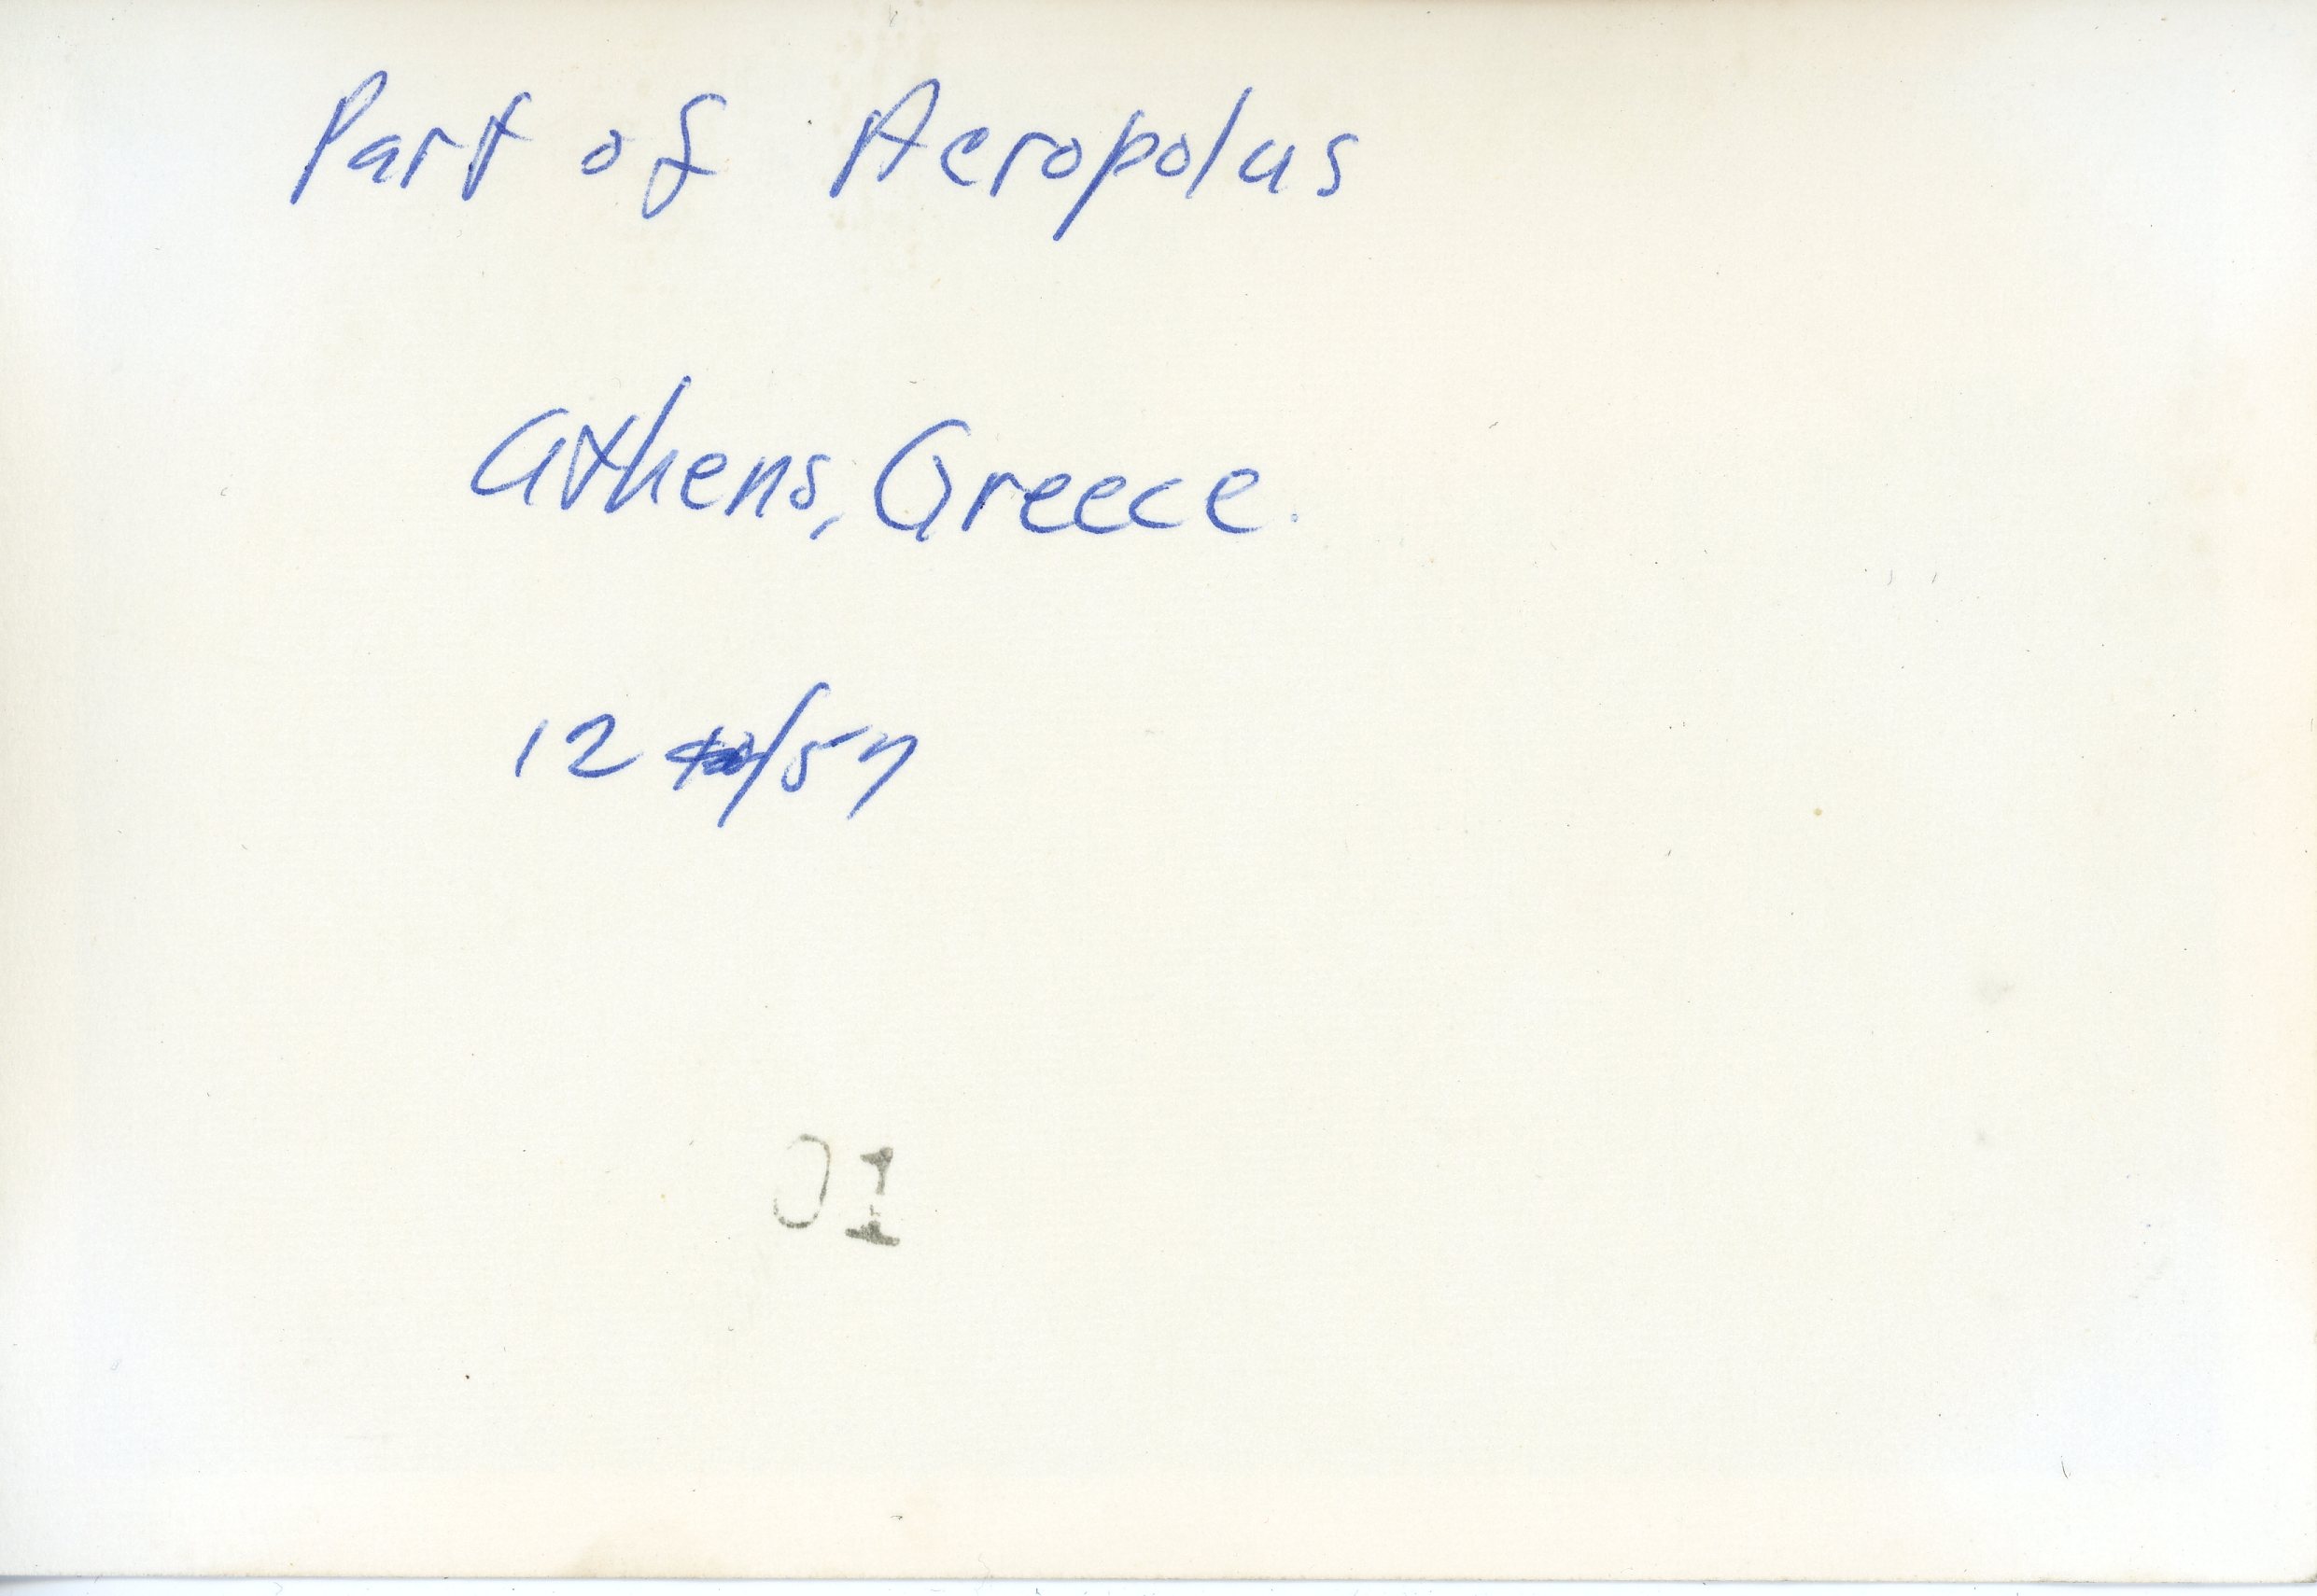 Part of Acropolus
Athens, Greece.
12 /57
01